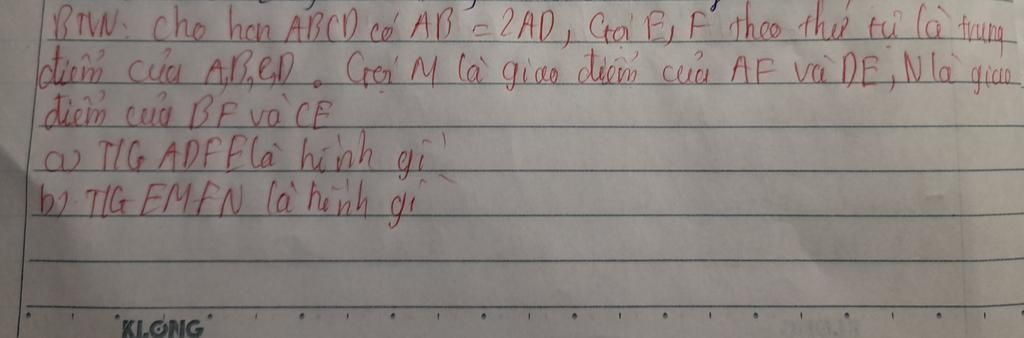 BTVN: cho hcn ABCD có AB = 2AD, Gọi E, F theo thứ tự là trung
điểm của A,B,C,D. Gọi M là giao điểm của AF và DE, N là giao
điểm của BF và CE
a) T/G ADFE là hình gì
b) T/G EMFN là hình gì
KLONG